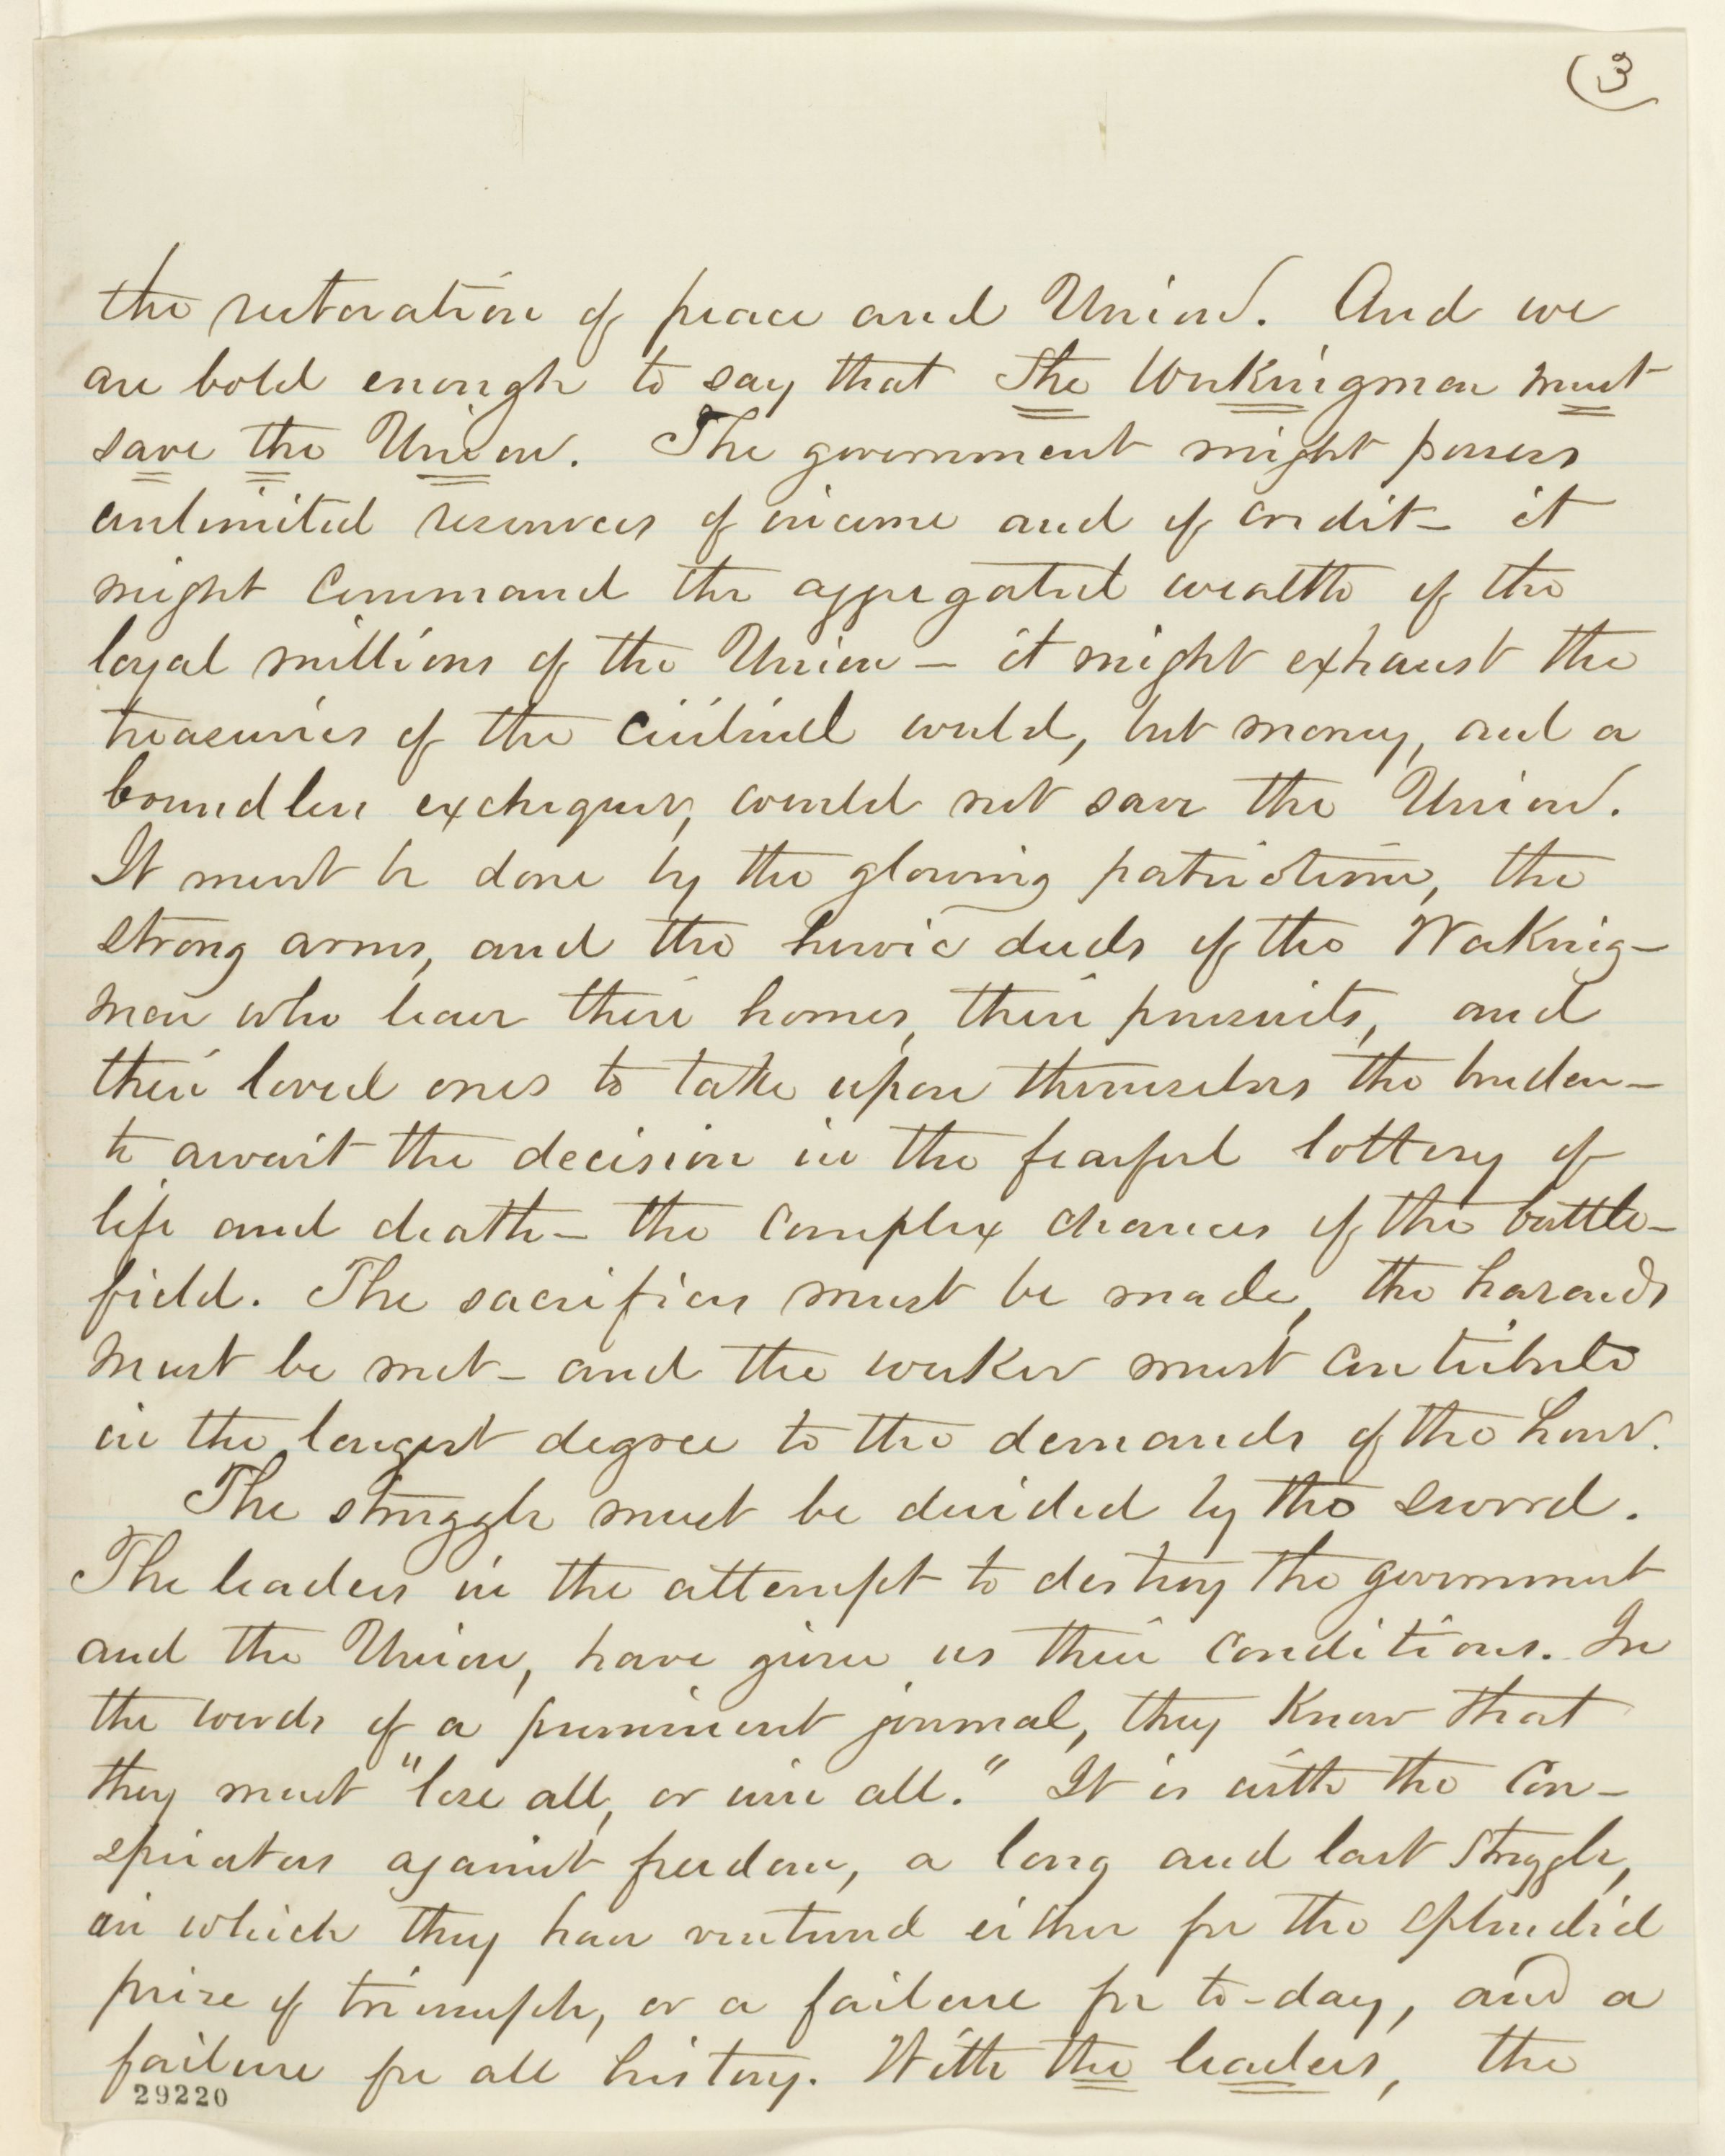 (3
the restoration of peace and Union. And we
are bold enough to say that The Workingmen must
save the Union. The government might possess
unlimited resources of income and of credit— it
might command the aggregated wealth of the
loyal millions of the Union— it might exhaust the
treasuries of the civilized world, but money, and a
boundless exchequer, could not save the Union.
It must be done by the glowing patriotism, the
strong arms, and the heroic deeds of the Working-
men who leave their homes, their pursuits, and
their loved ones to take upon themselves the burden—
to await the decision in the fearful lottery of
life and death— the complex chances of the battle-
field. The sacrifices must be made, the hazards
must be met— and the worker must contribute
in the largest degree to the demands of the hour.
The struggle must be decided by the sword.
The leaders in the attempt to destroy the government
and the Union, have given us their conditions. In
the words of a prominent journal, they know that
they must "lose all, or win all." It is with the con-
spirators against freedom, a long and last struggle,
in which they have ventured either for the splendid
prize of triumph, or a failure for to-day, and a
failure for all history. With the leaders, the
29220